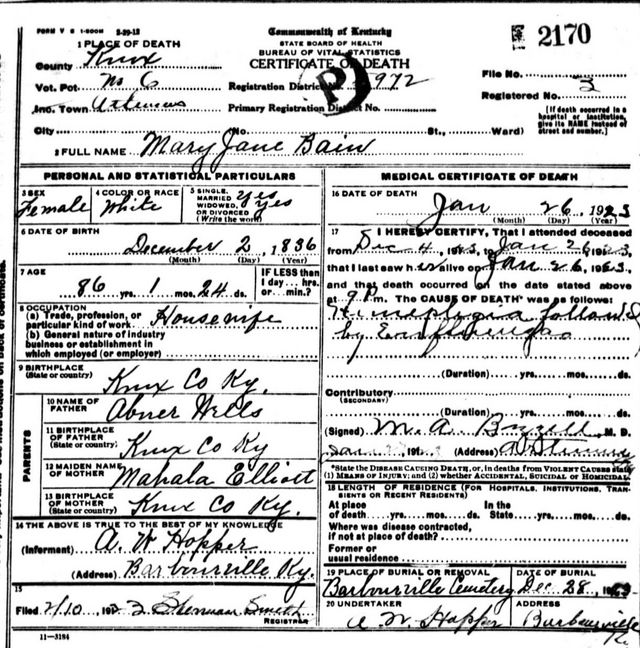 FORM V S 1-500M 2-29-12
1 PLACE OF DEATH
County Knox
Vot. Pct. No 6
Inc. Town Artemus
City No. St., Ward)
2 FULL NAME Mary Jane Bain
Commonwealth of Kentucky
STATE BOARD OF HEALTH
BUREAU OF VITAL STATISTICS
CERTIFICATE OF DEATH
Registration District No. 972
Primary Registration District No.
P
2170
File No.
Registered No. 2
[If death occurred in a
hospital or institution,
give its NAME instead of
street and number.]
PERSONAL AND STATISTICAL PARTICULARS
3 SEX
Female
4 COLOR OR RACE
White
5 SINGLE,
MARRIED
WIDOWED,
OR DIVORCED
(Write the word)
yes
yes
6 DATE OF BIRTH
December 2, 1836
(Month) (Day) (Year)
7 AGE
86 yrs. 1 mos. 24 ds.
IF LESS than
1 day.... hrs.
or... min.?
8 OCCUPATION
(a) Trade, profession, or
particular kind of work Housewife
(b) General nature of industry
business or establishment in
which employed (or employer)
9 BIRTHPLACE
(State or country) Knox Co Ky.
PARENTS
10 NAME OF
FATHER Abner Wells
11 BIRTHPLACE
OF FATHER
(State or country) Knox Co Ky
12 MAIDEN NAME
OF MOTHER Mahala Elliott
13 BIRTHPLACE
OF MOTHER
(State or country) Knox Co Ky.
14 THE ABOVE IS TRUE TO THE BEST OF MY KNOWLEDGE
(Informant) A. W Hopper
(Address) Barbourville Ky.
15
Filed 2/10 192 3 Sherman Smith
REGISTRAR
11-3184
MEDICAL CERTIFICATE OF DEATH
16 DATE OF DEATH
Jan 26, 1923
(Month) (Day) (Year)
17 I HEREBY CERTIFY, That I attended deceased
from Dec 4, Jan 26, 1923,
that I last saw her alive on Jan 26, 1923,
and that death occurred on the date stated above
at 9 P m. The CAUSE OF DEATH* was as follows:
Himeplegia followed
by
(Duration) yrs. mos. ds.
Contributory
(SECONDARY)
(Duration) yrs. mos. ds.
(Signed) M. A. M. D.
191 (Address)
*State the DISEASE CAUSING DEATH, or, in deaths from VIOLENT CAUSES state
(1) MEANS OF INJURY; and (2) whether ACCIDENTAL, SUICIDAL or HOMICIDAL.
18 LENGTH OF RESIDENCE (FOR HOSPITALS, INSTITUTIONS, TRAN-
SIENTS OR RECENT RESIDENTS)
At place In the
of death....yrs....mos....ds. State....yrs....mos....ds.
Where was disease contracted,
if not at place of death?
Former or
usual residence
19 PLACE OF BURIAL OR REMOVAL DATE OF BURIAL
Barbourville Cemetery Dec 28,
20 UNDERTAKER ADDRESS
A. W. Hopper Barbourville
Ky